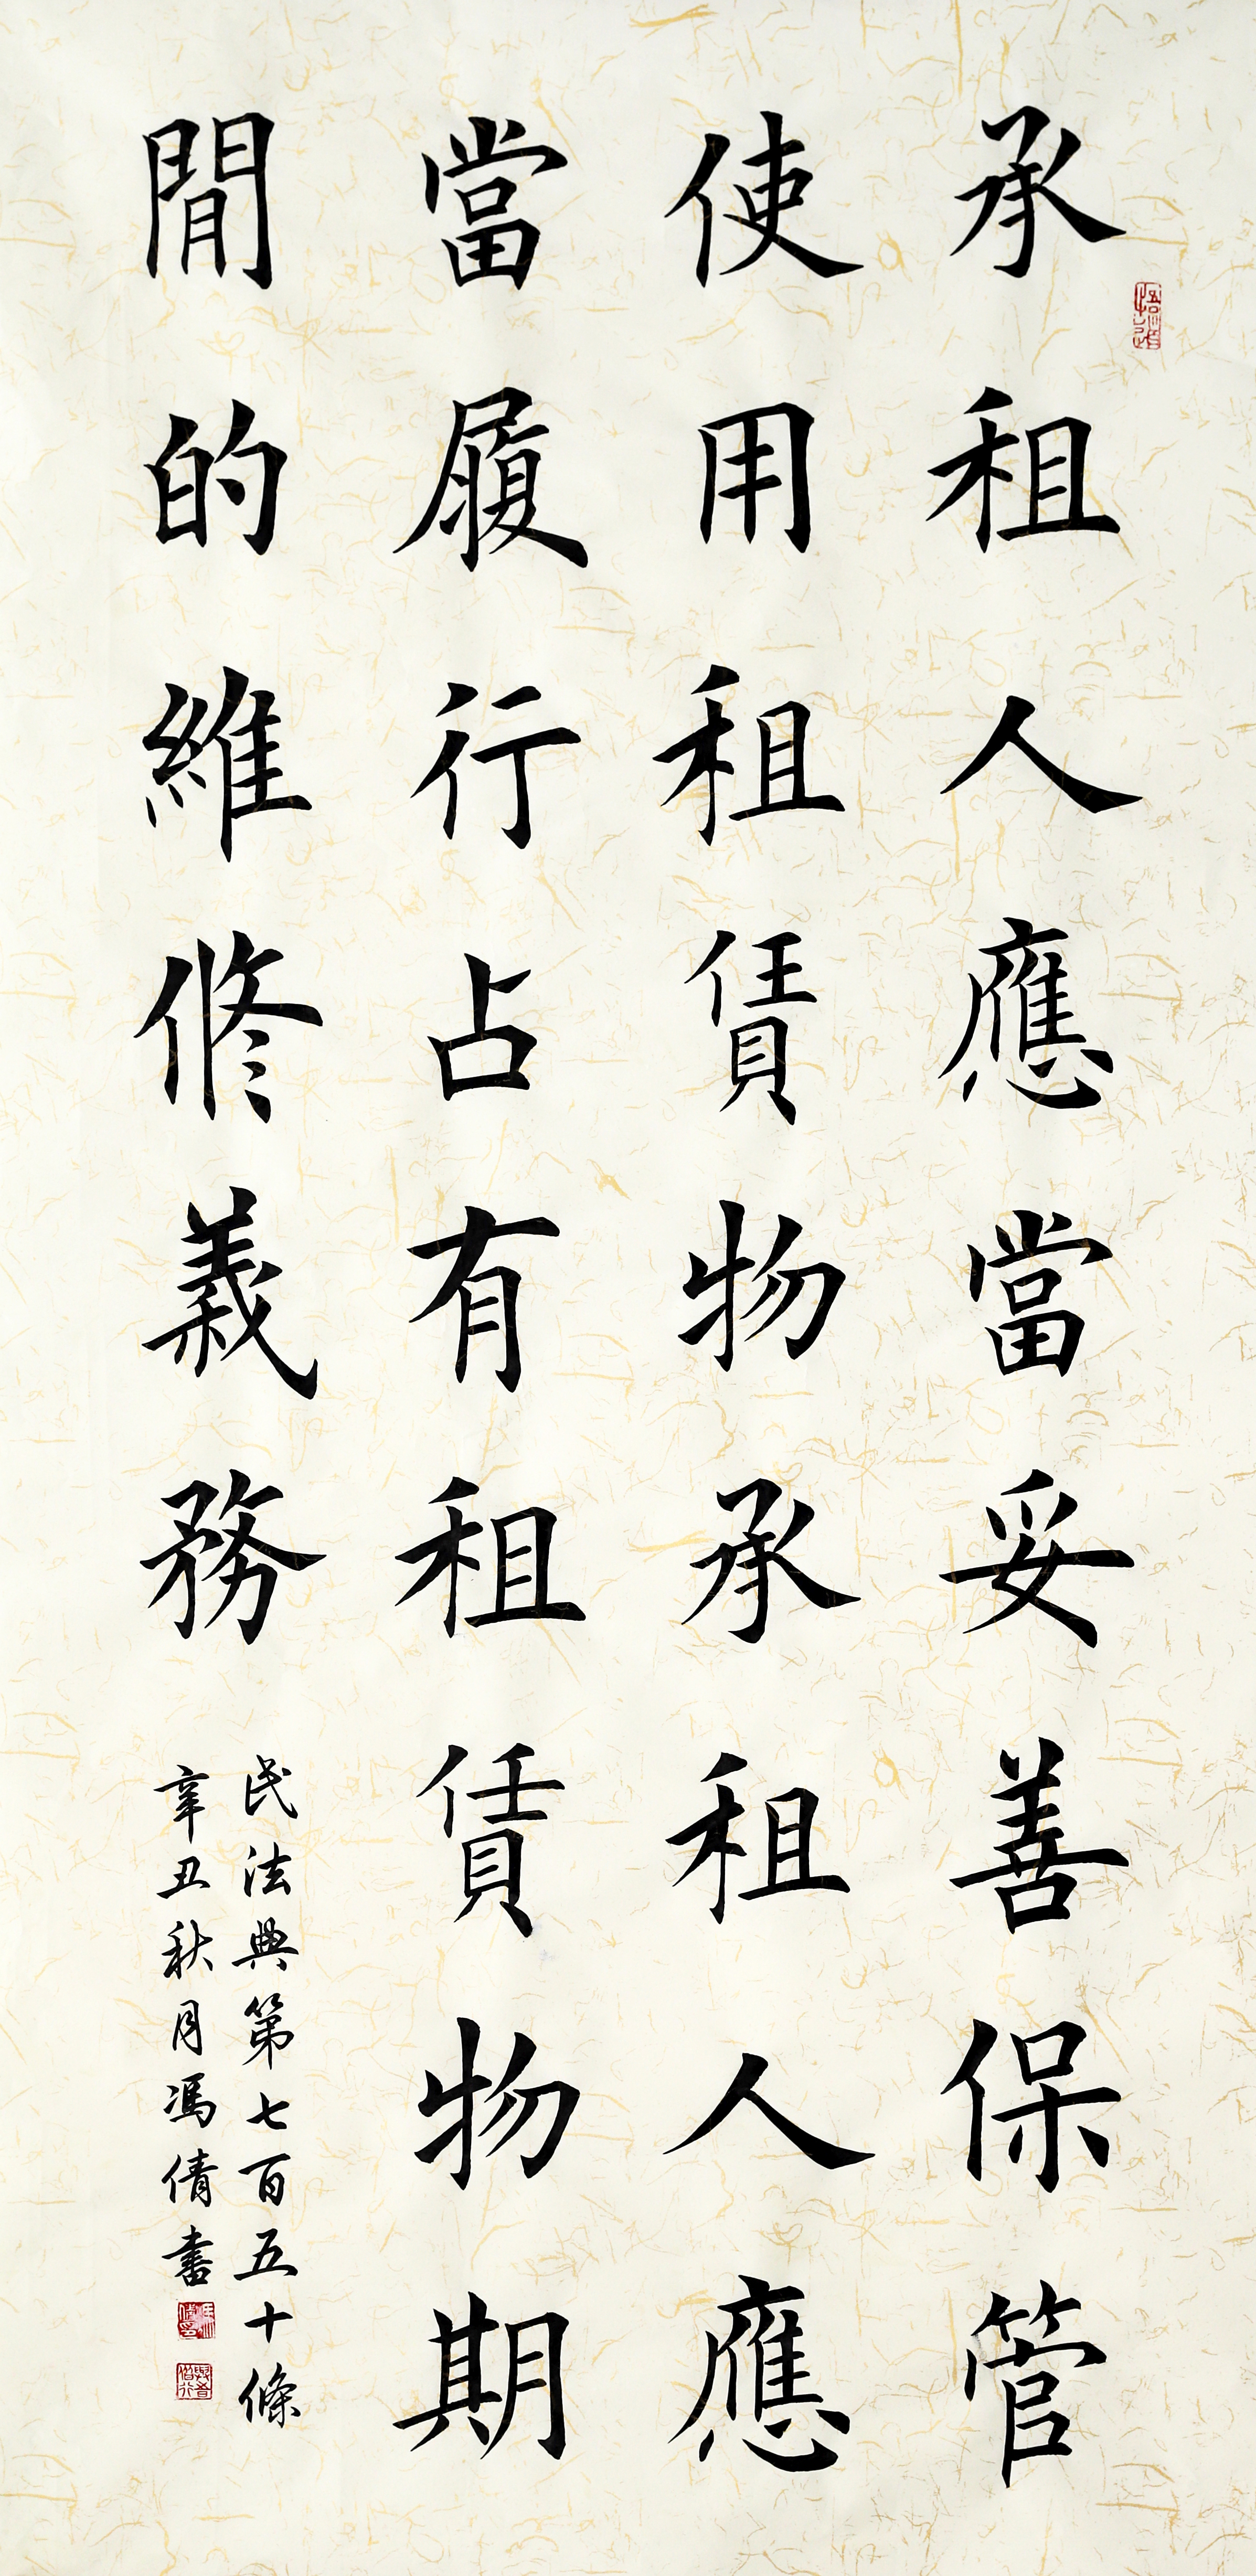 承租人應當妥善保管
使用租賃物承租人應
當履行占有租賃物期
間的維修義務
民法典第七百五十條
辛丑秋月馮倩書